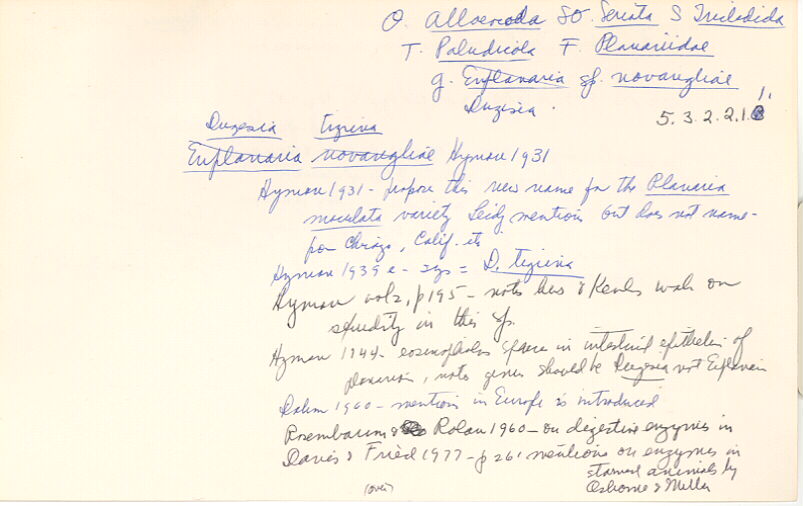 O. Alloeocoela SO. Seriata S Tricladida
T. Paludicola F. Planariidae
g. Euplanaria sp. novangliae
Dugesia.
5.3.2.2.1.
1.
Dugesia tigrina
Euplanaria novangliae Hyman 1931
Hyman 1931 - propose this new name for the Planaria
maculata variety Leidy mentions but does not name-
from Chicago, Calif. etc
Hyman 1939 e - says = D. tigrina
Hyman vol 2, p 195 - notes hers & Kenks work on
sexuality in this sp.
Hyman 1944 - eosinophilic spheres in intestinal epithelia of
planarian, notes genus should be Dugesia not Euplanaria
Dahm 1960 - mention in Europe is introduced
Rosenbaum & Rolon 1960 - on digestive enzymes in
Davis & Fried 1977 - p 261 mentions on enzymes in
starved animals by
Osborne & Miller
(over)